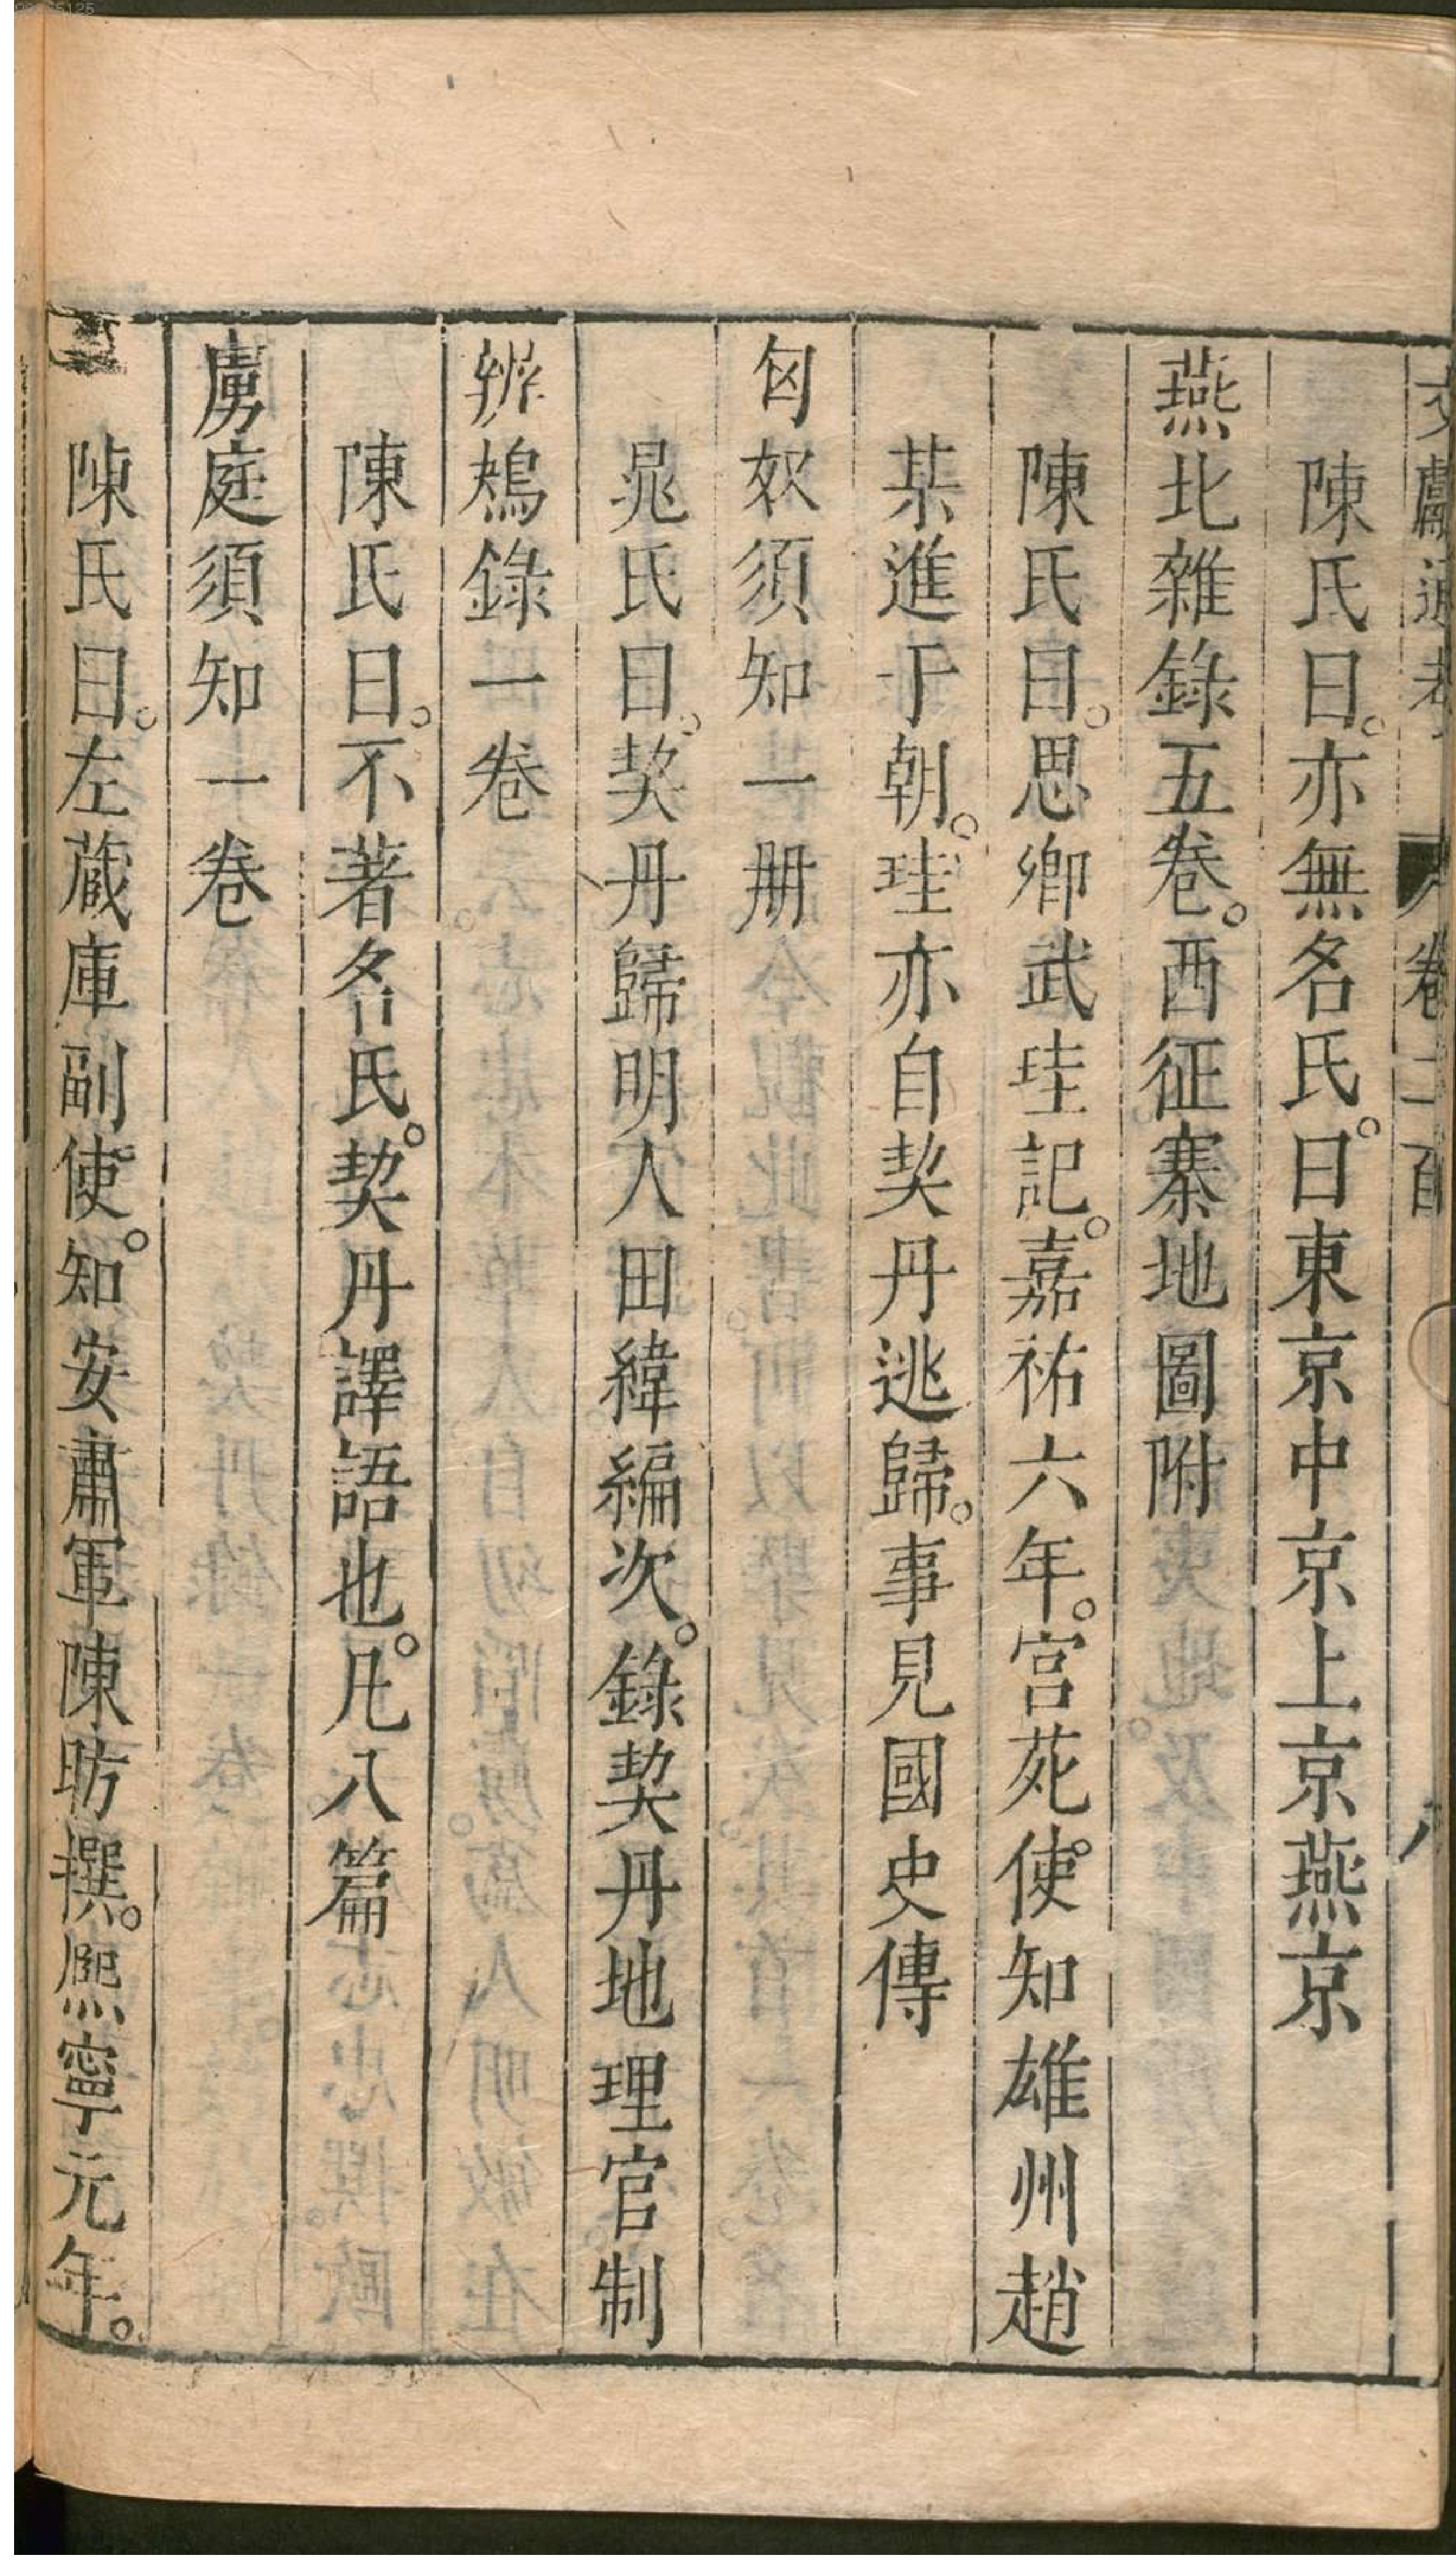 文獻通考 卷二百 八
陳氏曰。亦無名氏。曰東京中京上京燕京
燕北雜錄五卷。西征寨地圖附
陳氏曰。思卿武珪記。嘉祐六年。宮苑使知雄州趙
某進于朝。珪亦自契丹逃歸。事見國史傳
匈奴須知一册
晁氏曰。契丹歸明人田緯編次。錄契丹地理官制
辨鴂錄一卷
陳氏曰。不著名氏。契丹譯語也。凡八篇
虜庭須知一卷
陳氏曰。左蔵庫副使。知安肅軍陳昉撰。熈寧元年。